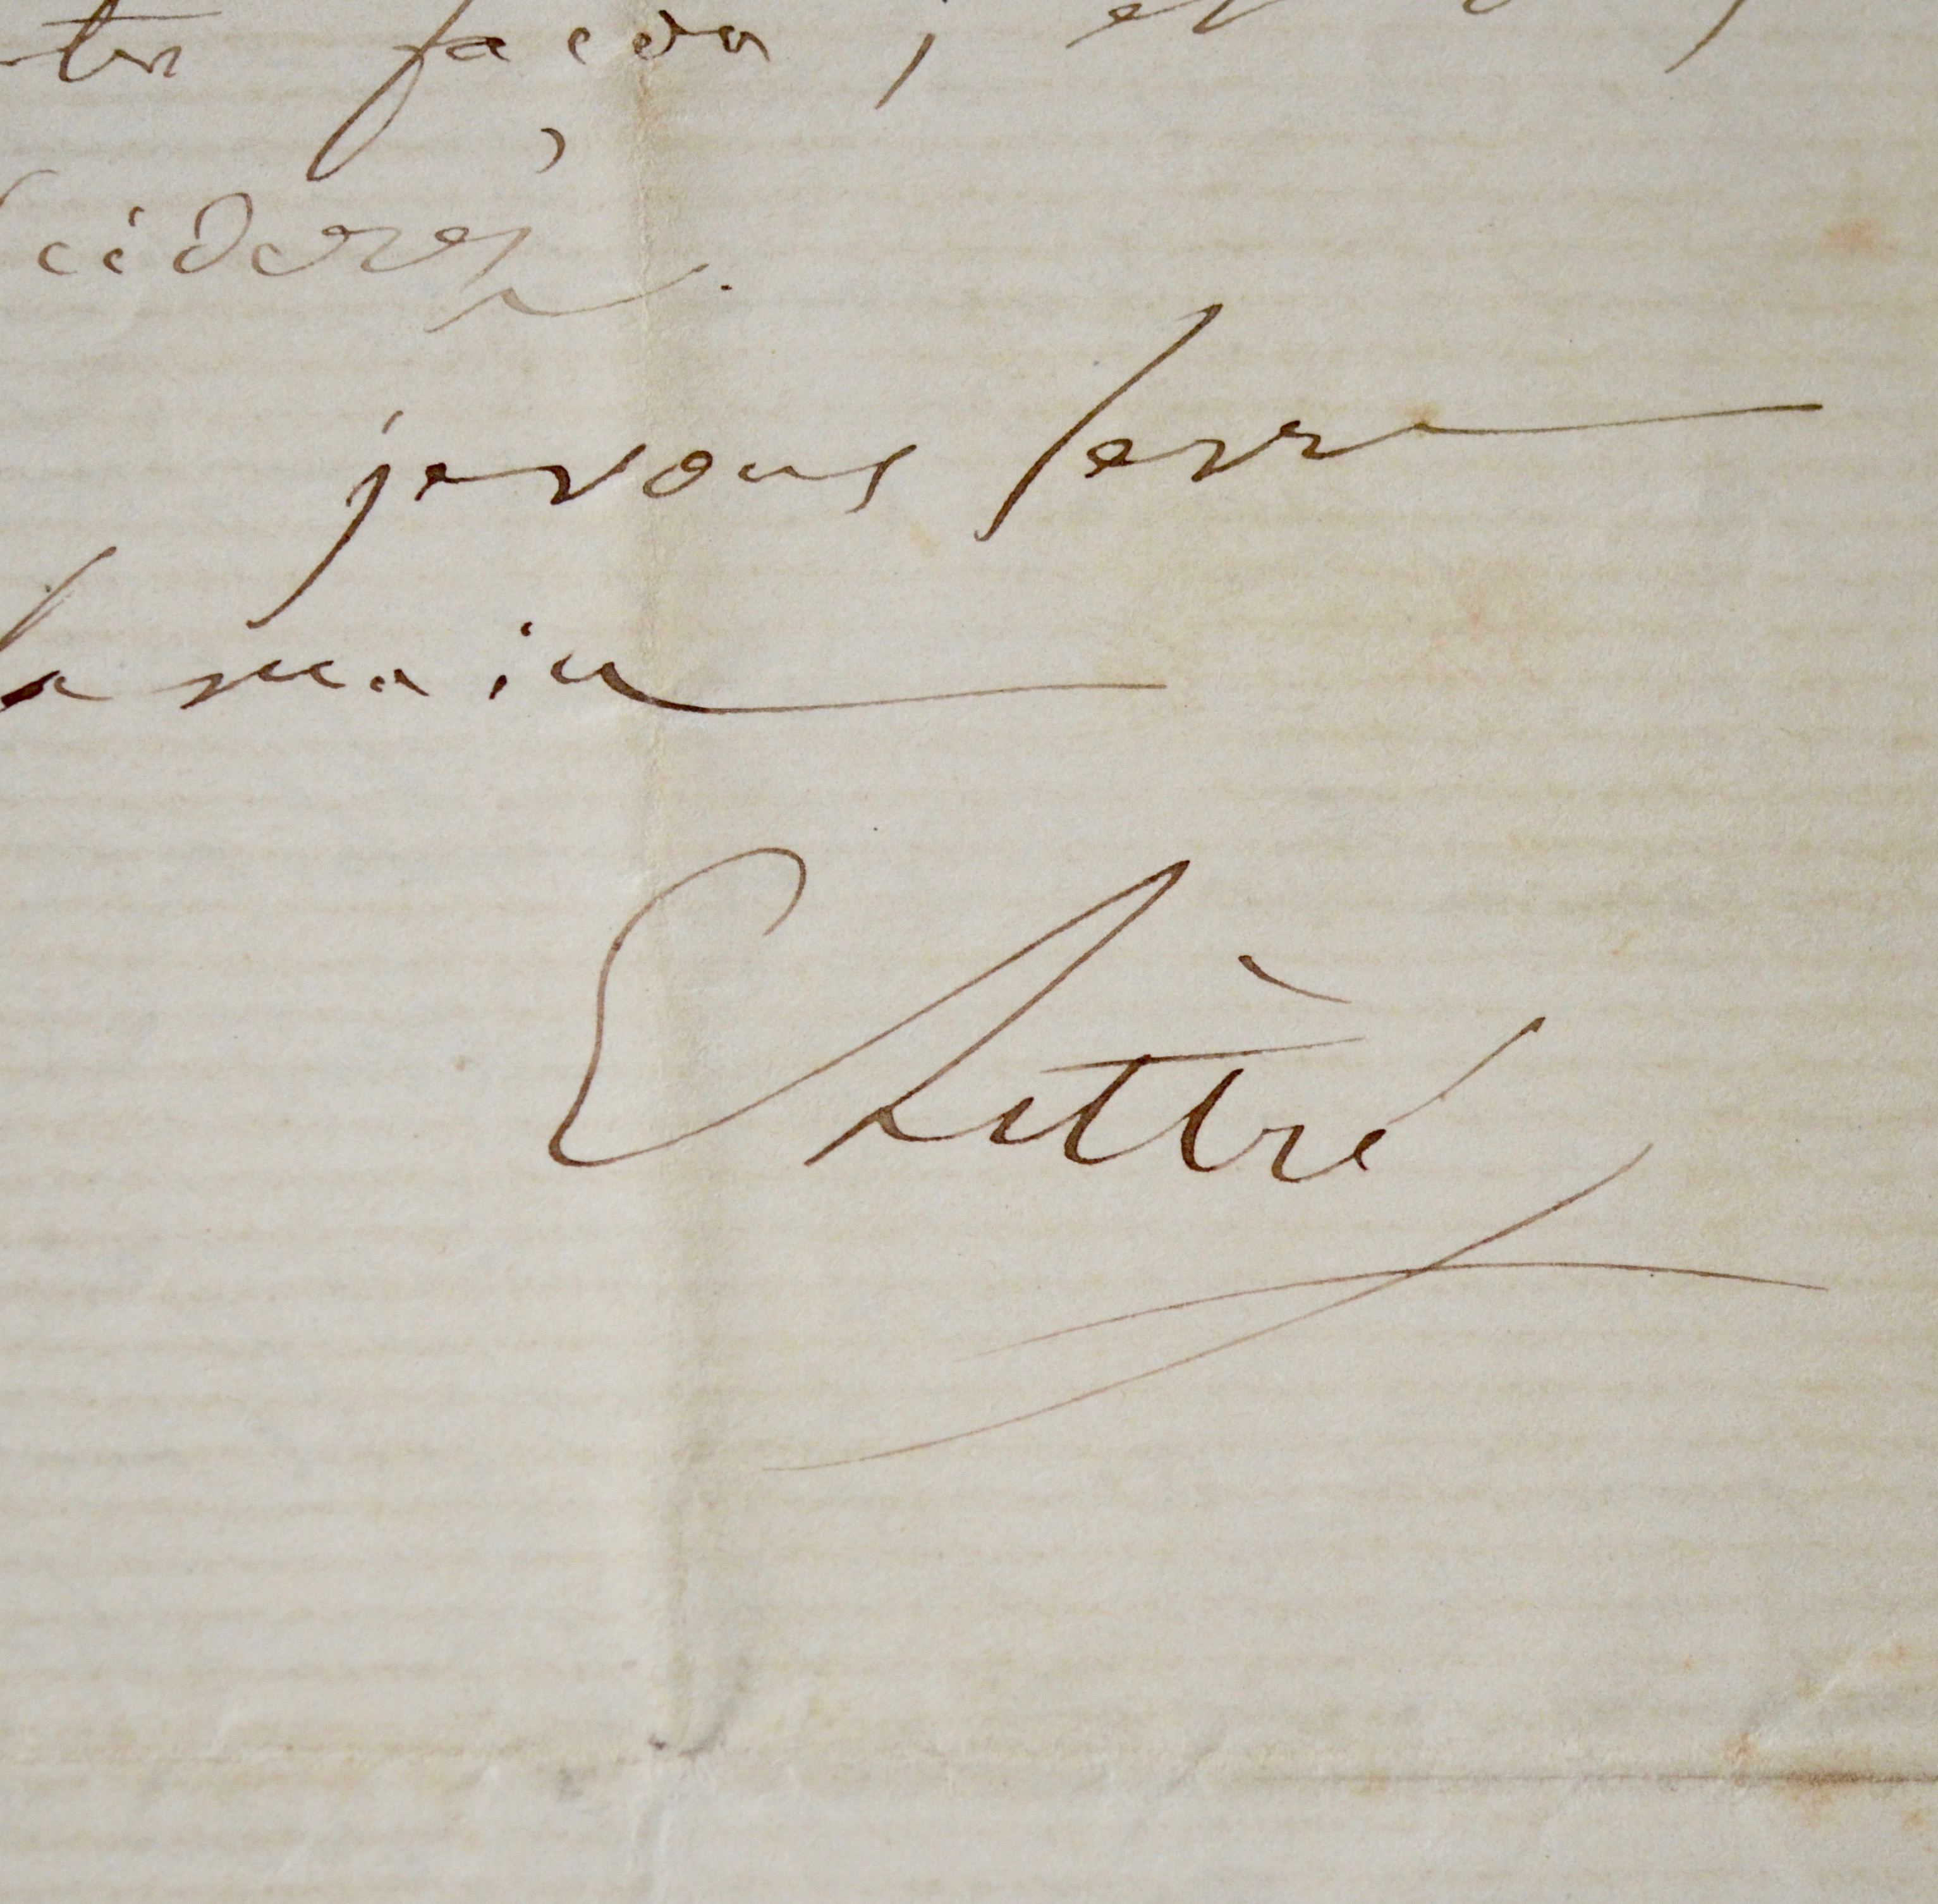 façon ; et
ciderez.
je vous serre
la main
E Littré